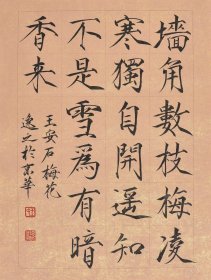 墻角數枝梅凌
寒獨自開遥知
不是雪爲有暗
香来
王安石梅花
逸之於京華